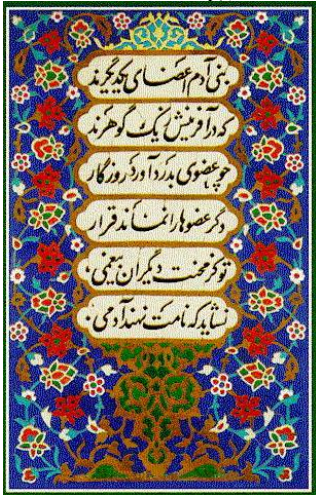 بنی آدم اعضای یکدیگرند
که در آفرینش ز یک گوهرند
چو عضوی بدرد آورد روزگار
دگر عضوها را نماند قرار
تو کز محنت دیگران بیغمی
نشاید که نامت نهند آدمی